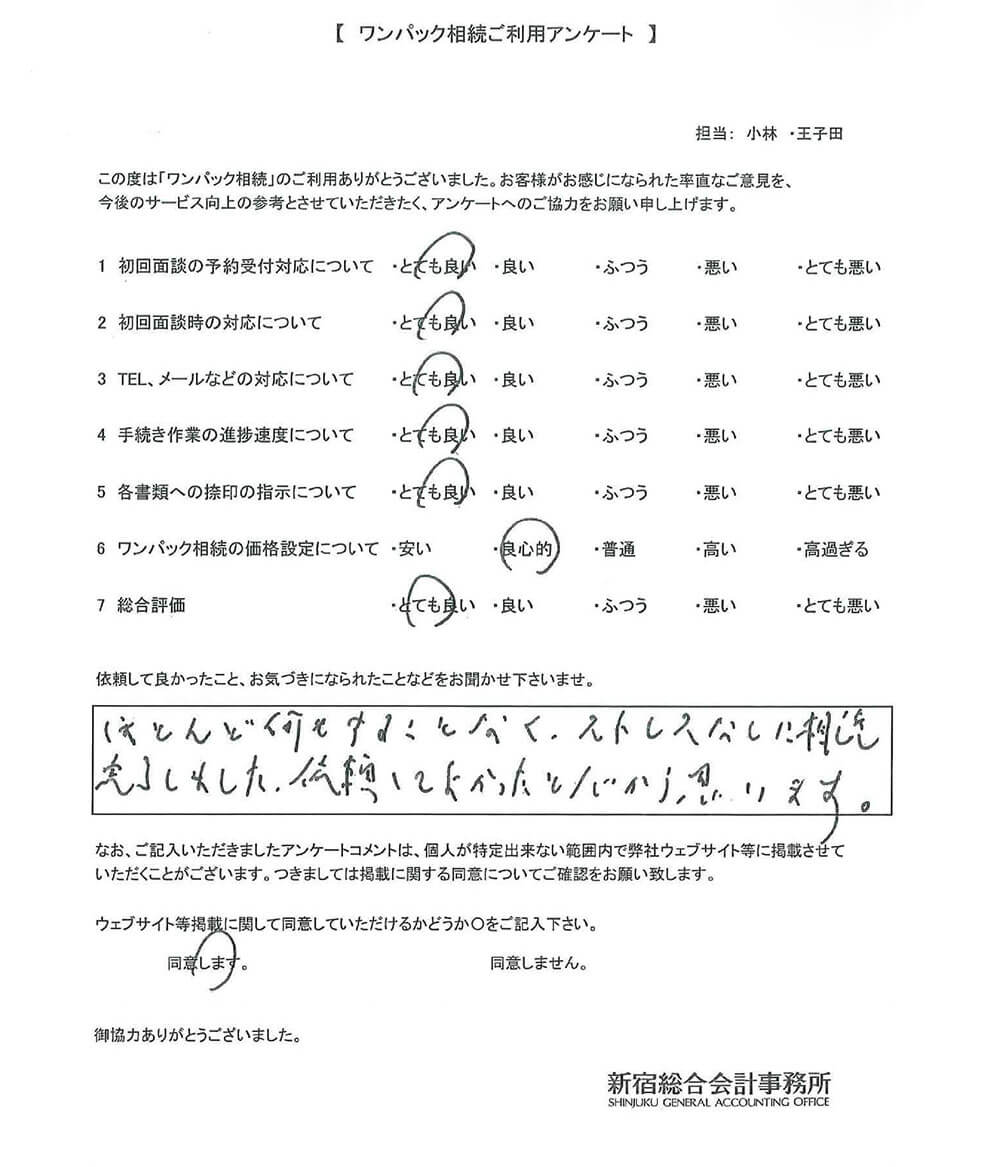 【 ワンパック相続ご利用アンケート 】
担当: 小林 ・王子田
この度は「ワンパック相続」のご利用ありがとうございました。お客様がお感じになられた率直なご意見を、
今後のサービス向上の参考とさせていただきたく、アンケートへのご協力をお願い申し上げます。
1 初回面談の予約受付対応について ・とても良い ・良い ・ふつう ・悪い ・とても悪い
2 初回面談時の対応について ・とても良い ・良い ・ふつう ・悪い ・とても悪い
3 TEL、メールなどの対応について ・とても良い ・良い ・ふつう ・悪い ・とても悪い
4 手続き作業の進捗速度について ・とても良い ・良い ・ふつう ・悪い ・とても悪い
5 各書類への捺印の指示について ・とても良い ・良い ・ふつう ・悪い ・とても悪い
6 ワンパック相続の価格設定について ・安い ・良心的 ・普通 ・高い ・高過ぎる
7 総合評価 ・とても良い ・良い ・ふつう ・悪い ・とても悪い
依頼して良かったこと、お気づきになられたことなどをお聞かせ下さいませ。
ほとんど何もすることなく、ストレスなしに相続
完了しました。依頼してよかったと心から思います。
なお、ご記入いただきましたアンケートコメントは、個人が特定出来ない範囲内で弊社ウェブサイト等に掲載させて
いただくことがございます。つきましては掲載に関する同意についてご確認をお願い致します。
ウェブサイト等掲載に関して同意していただけるかどうか〇をご記入下さい。
同意します。 同意しません。
御協力ありがとうございました。
新宿総合会計事務所
SHINJUKU GENERAL ACCOUNTING OFFICE